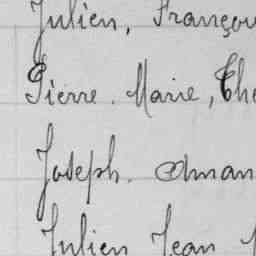 Julien, Françou
Pierre. Marie, The
Joseph. Aman
Julien Jean